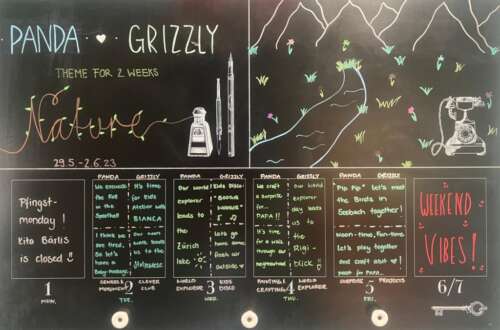 PANDA GRIZZLY
THEME FOR 2 WEEKS
Nature
29.5.-2.6.23
Pfingst-
monday!
Kita Bärlis
is closed
1
MON.
PANDA GRIZZLY
We
the
in the
I think we
are tired,
So let's
have a
Baby-massage.
It's time
for kids
Atelier with
BIANCA
Our nom
walk leads us
to the
2
TUE.
CLEVER
CLUB
PANDA GRIZZLY
Our world
explorer
leads to
the
Zürich
lake
Kids Disco:
Let's go
home some
fresh air
outside
3
WED.
WORLD
EXPLORER
KIDS
DISCO
PANDA GRIZZLY
We craft
a surprise
for
PAPA!!
It's time
for a walk
through our
neighborhood
Our world
explorer
day leads
us to
the
Rigi-
blick
4
THU.
PAINTING/
CRAFTING
WORLD
EXPLORER
PANDA GRIZZLY
"Pip Pip" let's meet
the Birds in
Seebach together!
Moon-time, fun-time
Let's play together
and craft
for PAPA.
5
FRI.
SURPRISE PROJECTS
WEEKEND
VIBES!
6/7